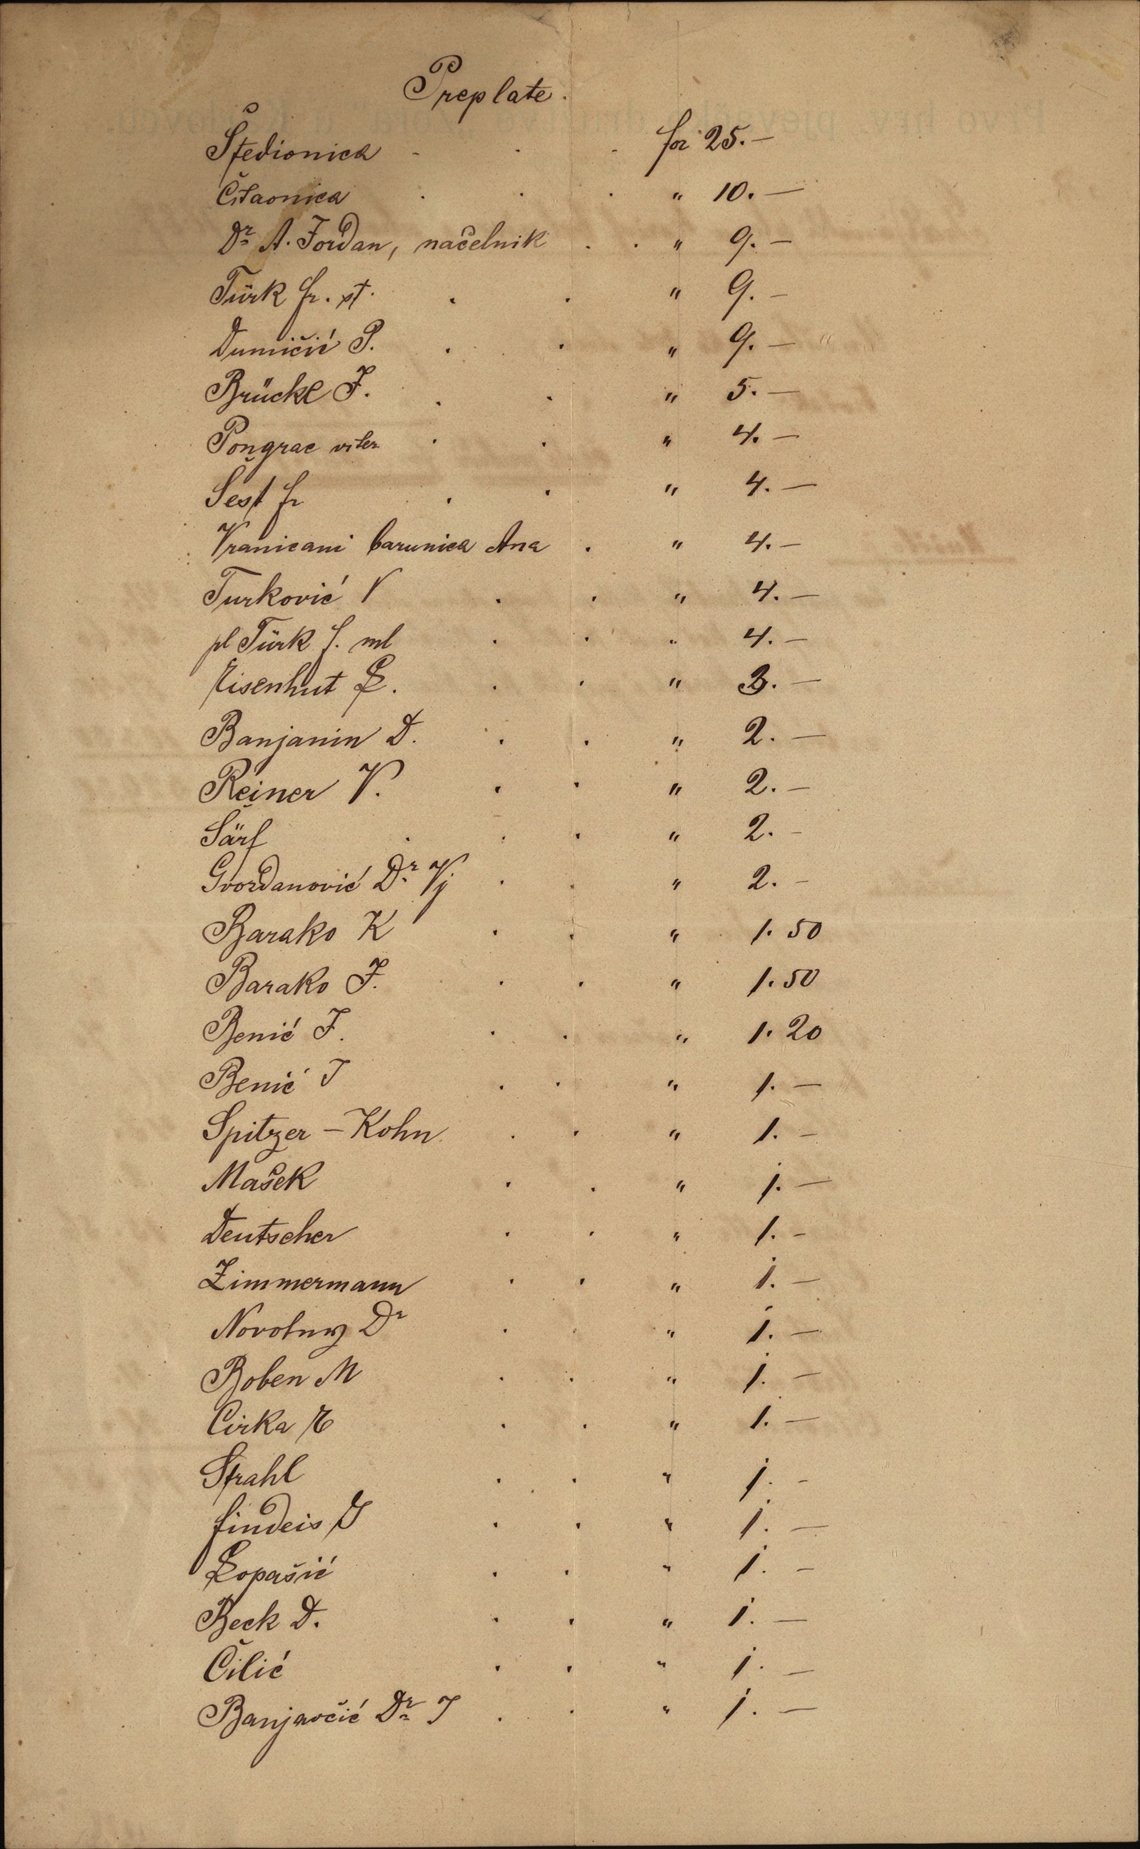 Preplate.
Štedionica . . . for 25.—
Čitaonica . . . " 10.—
Dr. A. Jordan, načelnik . . " 9.—
Türk Fr. st. . . " 9.—
Dumičić P. . . " 9.—
Brückl F. . . " 5.—
Pongrac vitez . . " 4.—
Šest Fr . . " 4.—
Vranicani barunica Ana . " 4.—
Turković V . . " 4.—
pl Türk F. ml . . " 4.—
Eisenhut L. . . " 3.—
Banjanin D. . . " 2.—
Reiner V. . . " 2.—
Šärf . . . " 2.—
Gvordanović Dr. Vj . . " 2.—
Barako K . . " 1.50
Barako F. . . " 1.50
Benić F. . . " 1.20
Benić I . . " 1.—
Spitzer – Kohn . . " 1.—
Mašek . . " 1.—
Deutscher . . " 1.—
Zimmermann . . " 1.—
Novotny Dr . . " 1.—
Boben M . . " 1.—
Cirka E . . " 1.—
Strahl . . " 1.—
Findeis . . " 1.—
Lopašić . . " 1.—
Beck D. . . " 1.—
Čilić . . " 1.—
Banjavčić Dr. I . . " 1.—